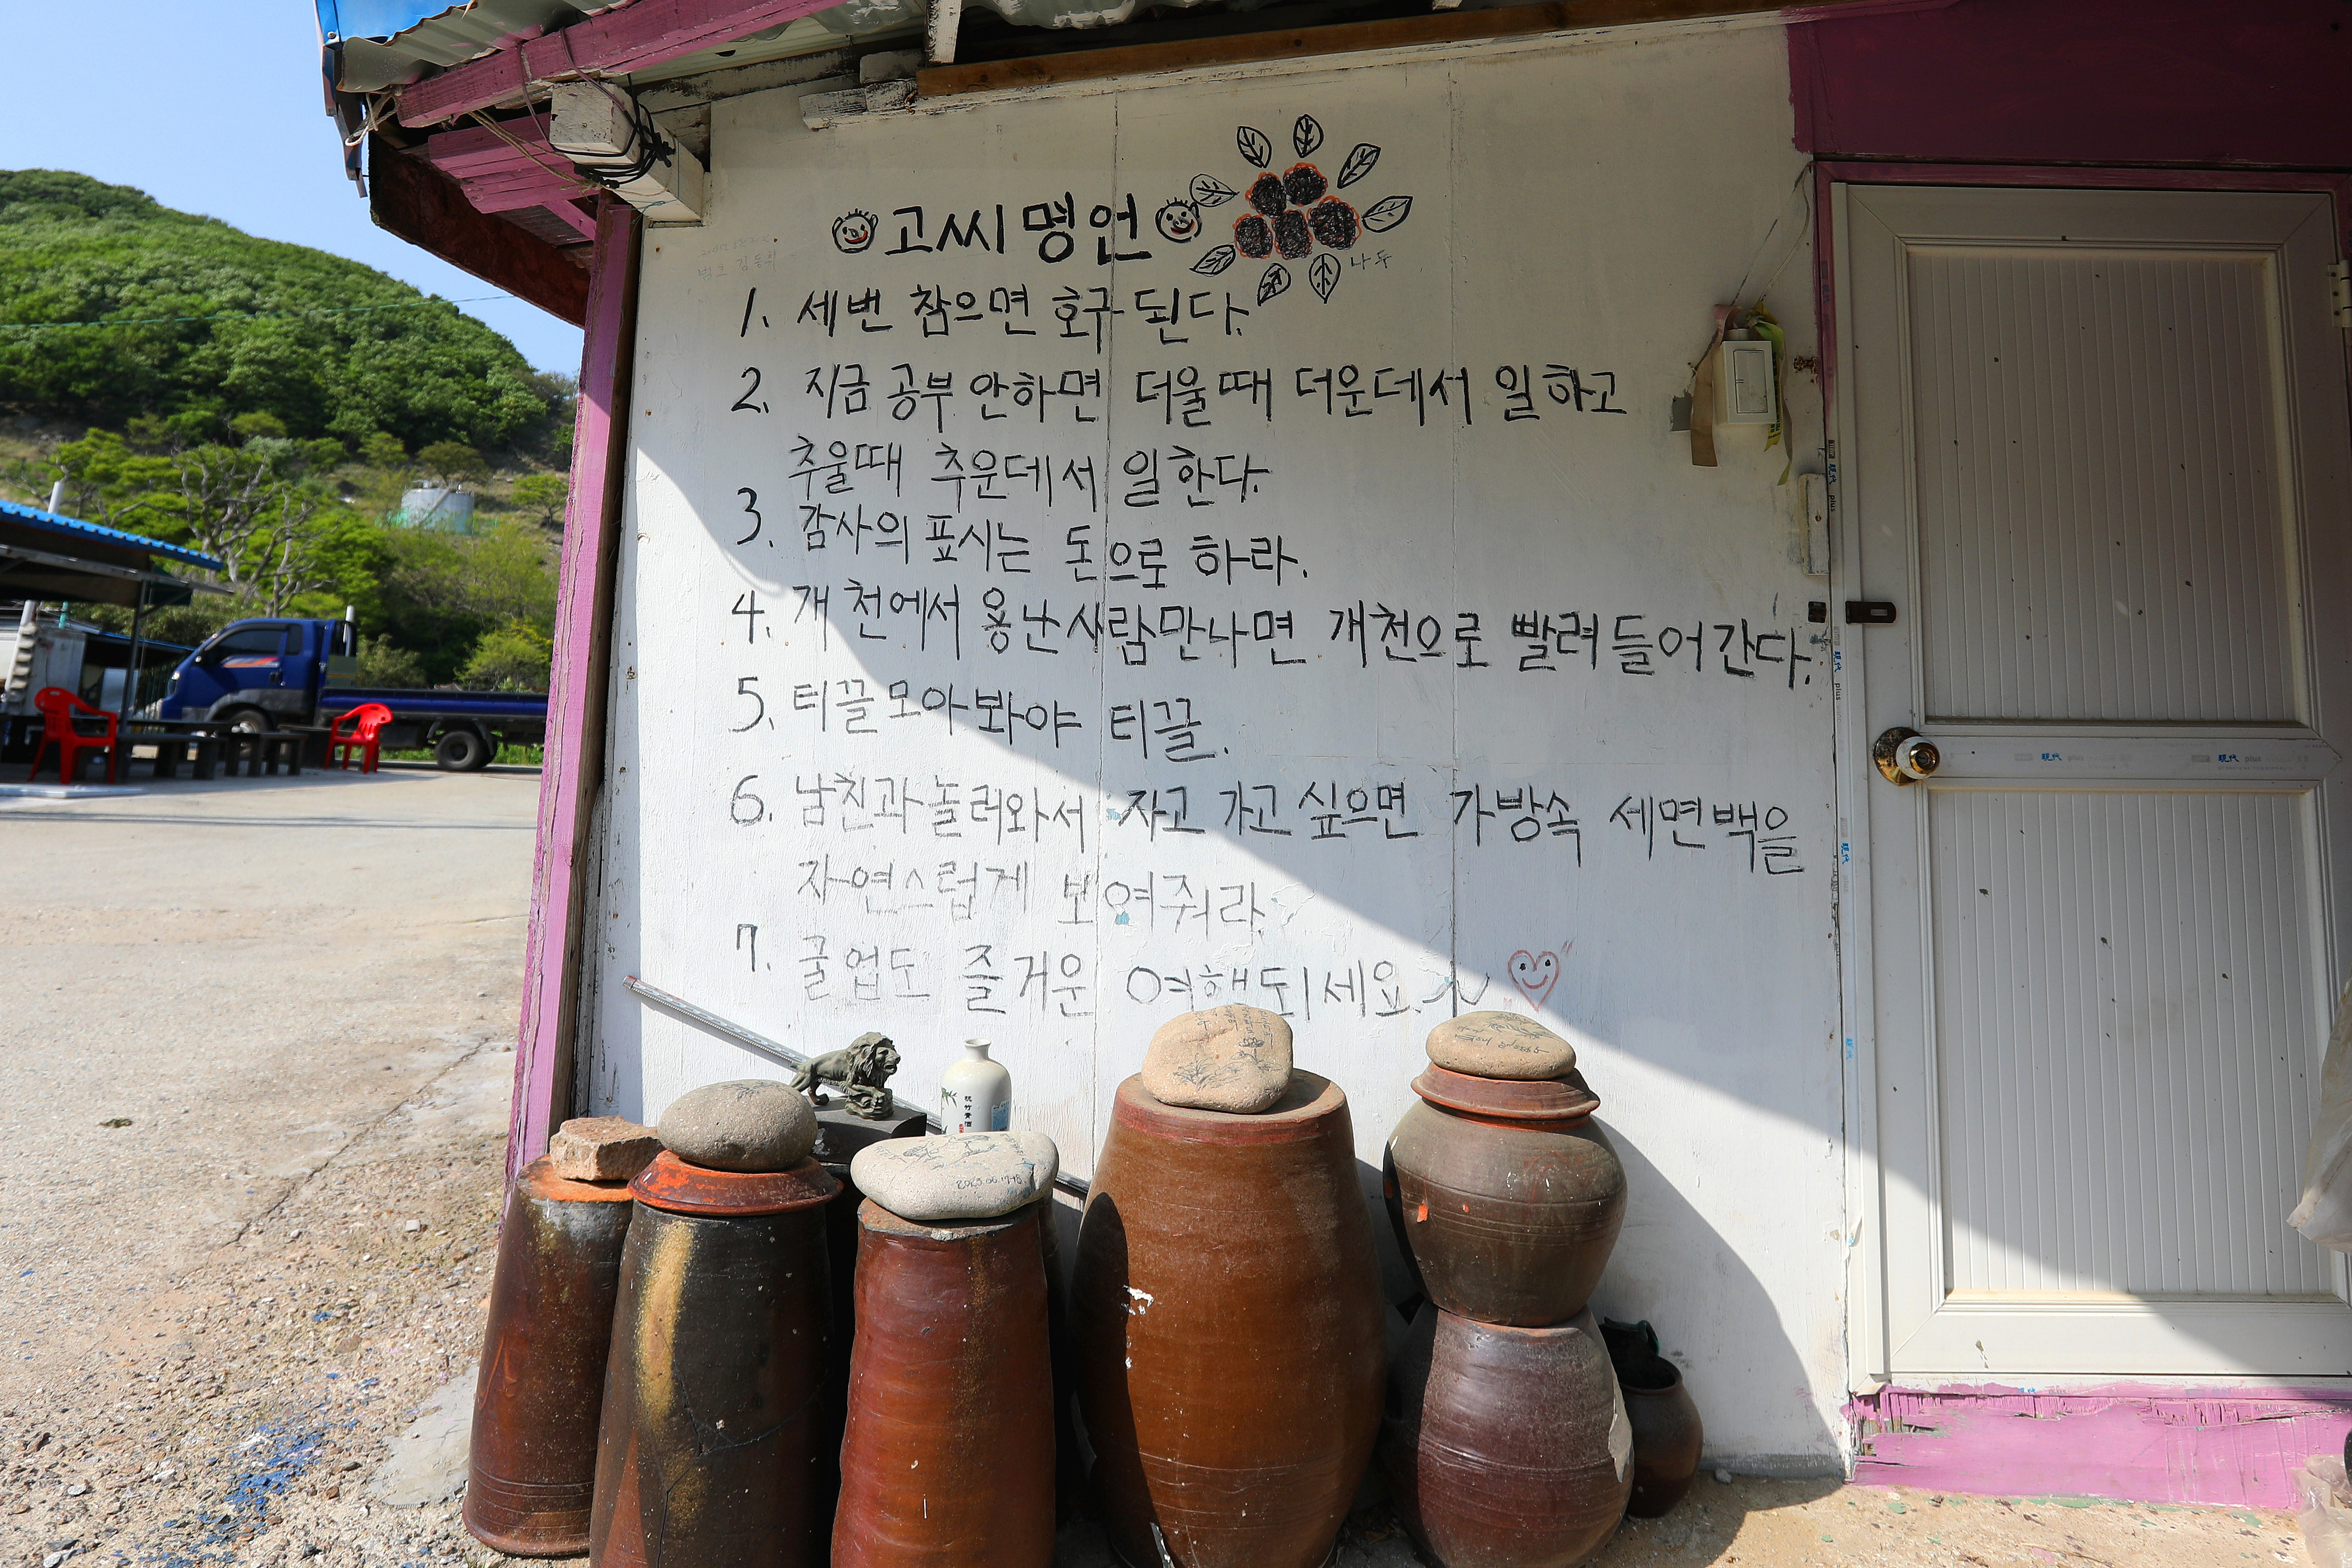 고씨 명언
나두
1. 세번 참으면 호구된다.
2. 지금 공부 안하면 더울때 더운데서 일하고
추울때 추운데서 일한다.
3. 감사의 표시는 돈으로 하라.
4. 개천에서 용난사람만나면 개천으로 빨려들어간다.
5. 티끌모아봐야 티끌.
6. 남친과놀러와서 자고 가고 싶으면 가방속 세면백을
자연스럽게 보여줘라.
7. 굴업도 즐거운 여행되세요.~
現代 plus